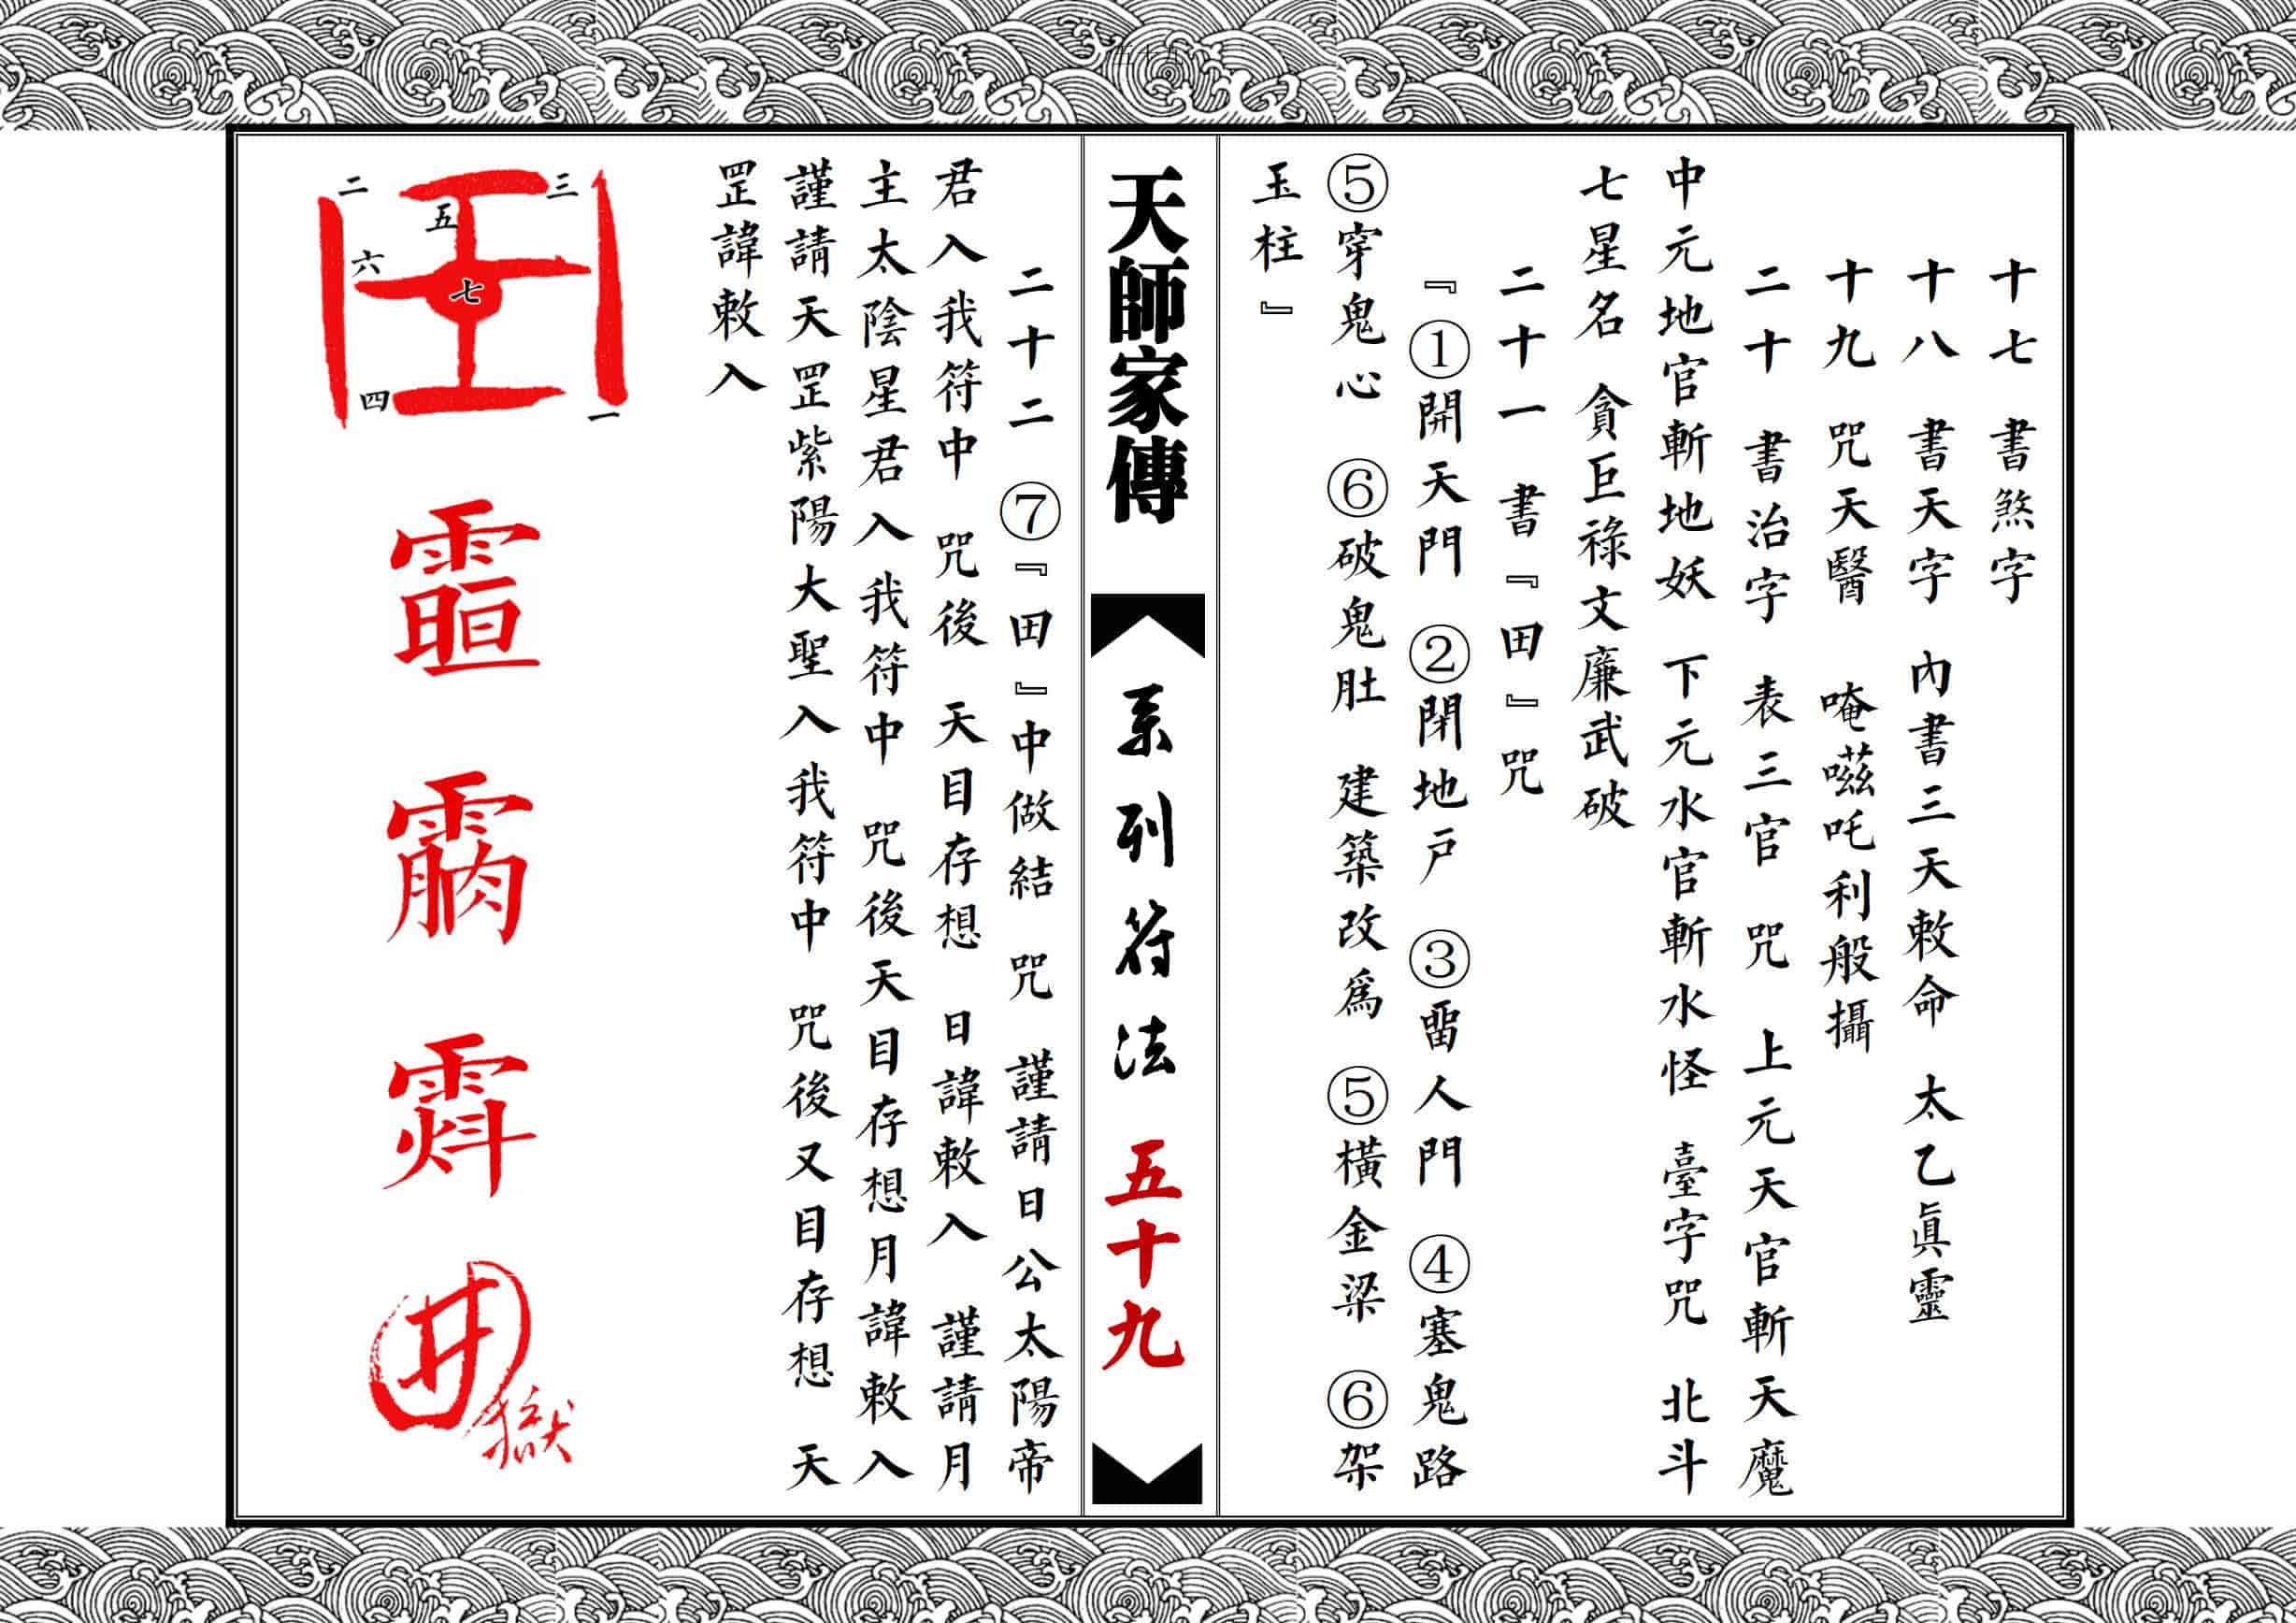 十七 書煞字
十八 書天字 內書三天敕命 太乙眞靈
十九 咒天醫 唵嗞吒利般攝
二十 書治字 表三官 咒 上元天官斬天魔
中元地官斬地妖 下元水官斬水怪 臺字咒 北斗
七星名 貪巨祿文廉武破
二十一 書『田』咒
『①開天門 ②閉地戶 ③畱人門 ④塞鬼路
⑤穿鬼心 ⑥破鬼肚 建築改爲 ⑤橫金梁 ⑥架
玉柱』
天師家傳
系列符法
五十九
二十二 ⑦『田』中做結 咒 謹請日公太陽帝
君入我符中 咒後 天目存想 日諱敕入 謹請月
主太陰星君入我符中 咒後天目存想月諱敕入
謹請天罡紫陽大聖入我符中 咒後又目存想 天
罡諱敕入
一
二
三
四
五
六
七
獄